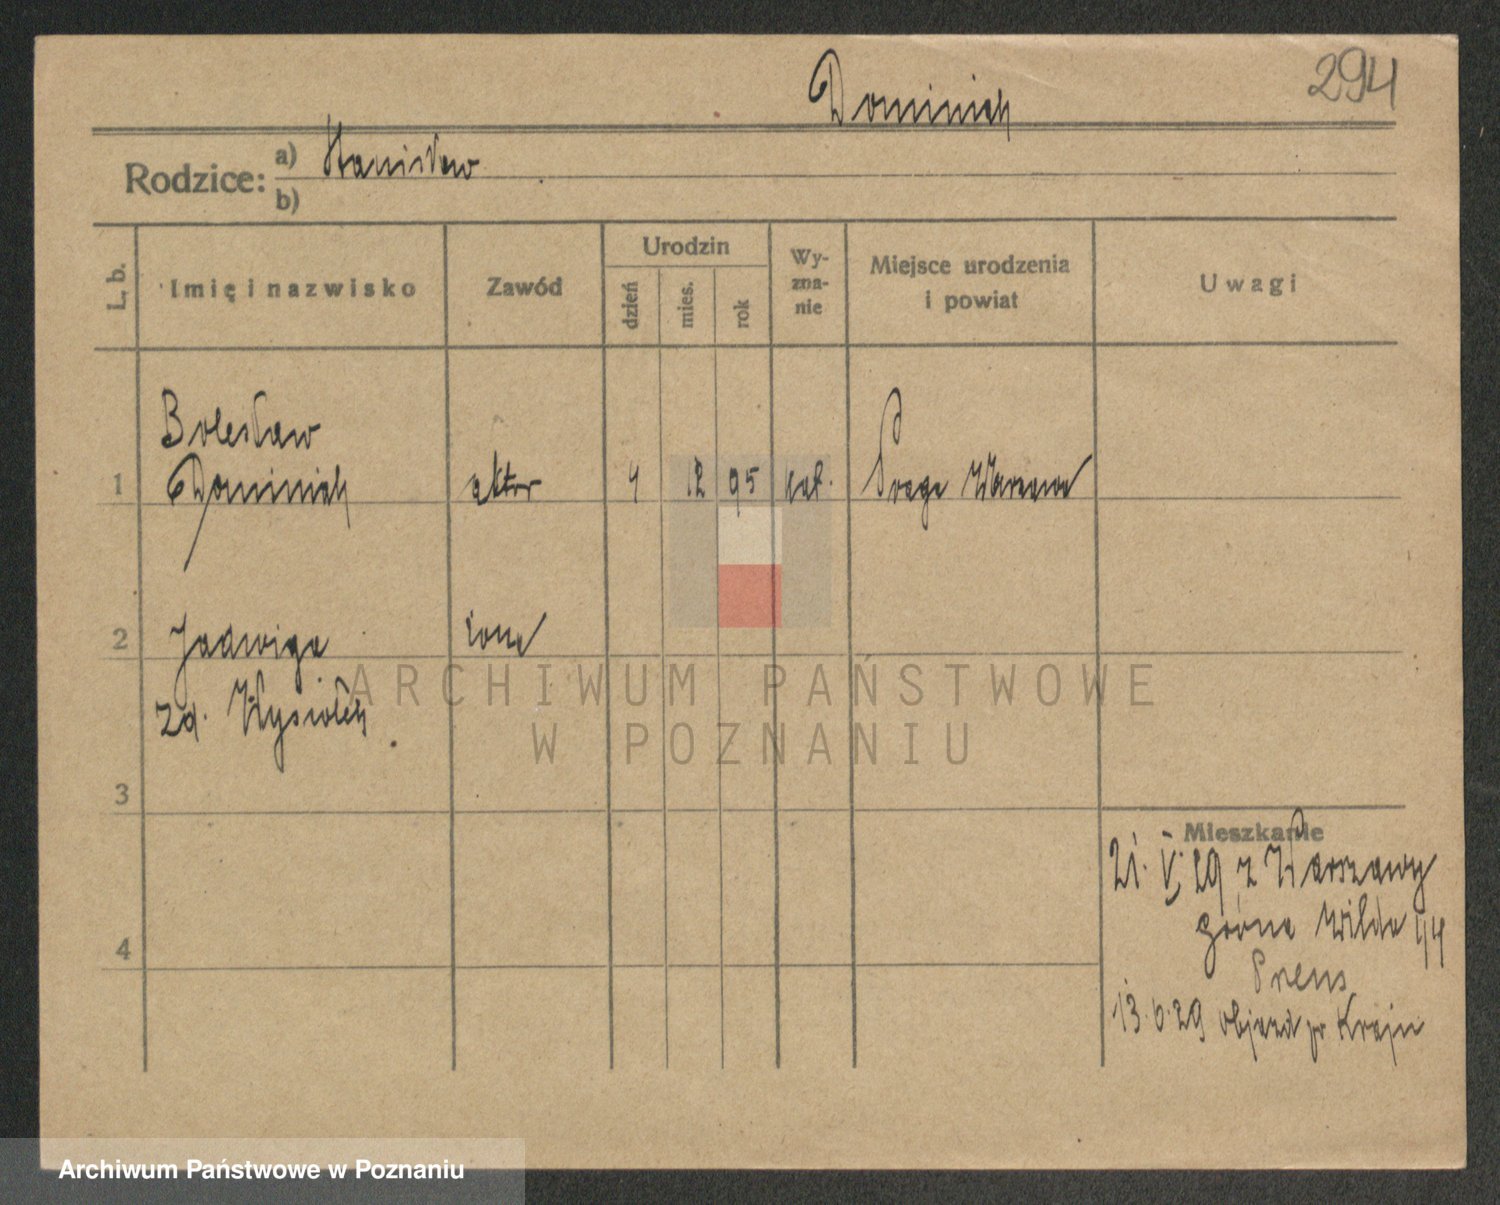 294
Dominiak
Rodzice: a) Stanisław
b)
L. b.
Imię i nazwisko
Zawód
Urodzin
dzień
mies.
rok
Wy-
zna-
nie
Miejsce urodzenia
i powiat
Uwagi
1
Bolesław
Dominiak
aktor
4
12
95
kat.
Praga Warszawa
2
Jadwiga
żona
zd.
3
4
Mieszkanie
21. V. 29 z Warszawy
górna Wilda 44
13.6.29 objazd po Kraju
ARCHIWUM PAŃSTWOWE
W POZNANIU
Archiwum Państwowe w Poznaniu